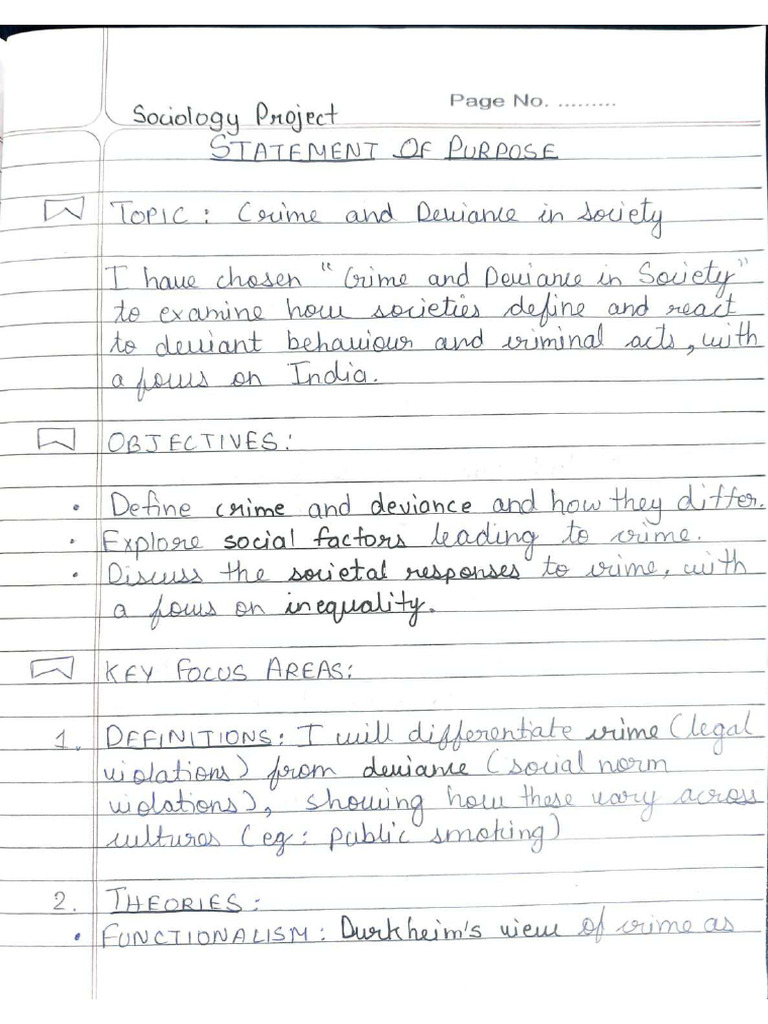 Page No. .........
Sociology Project
STATEMENT OF PURPOSE
TOPIC : Crime and Deviance in society
I have chosen "Crime and Deviance in Society"
to examine how societies define and react
to deviant behaviour and criminal acts, with
a focus on India.
OBJECTIVES :
• Define crime and deviance and how they differ.
• Explore social factors leading to crime.
• Discuss the societal responses to crime, with
a focus on inequality.
KEY FOCUS AREAS:
1. DEFINITIONS: I will differentiate crime (legal
violations) from deviance (social norm
violations), showing how these vary across
cultures (eg: public smoking)
2. THEORIES :
• FUNCTIONALISM : Durkheim's view of crime as